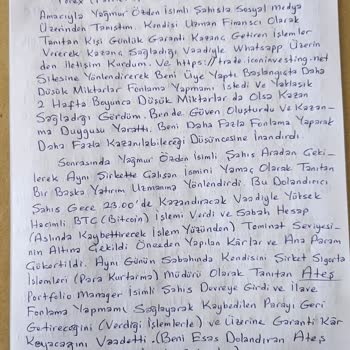 Amacıyla Yağmur Özden İsimli Şahısla Sosyal Medya
Üzerinden Tanıştım. Kendisi Uzman Finanscı Olarak
Tanıtan Kişi Günlük Garanti Kazanç Getiren İşlemler
Vererek Kazanç Sağladığı Vaadiyle Whatsapp Üzerin
den İletişim Kurdum. Ve https://trade.iconinvesting-net
Sitesine Yönlendirerek Beni Üye Yaptı Başlangıçta Daha
Düşük Miktarlar Fonlama Yapmamı İstedi Ve Yaklaşık
2 Hafta Boyunca Düşük Miktarlar da Olsa Kazan
Sağladığı Gördüm. Bende Güven Oluşturdu ve Kazan-
ma Duygusu Yarattı. Beni Daha Fazla Fonlama Yaparak
Daha Fazla Kazanılabileceği Düşüncesine İnandırdı.
Sonrasında Yağmur Özden İsimli Şahıs Aradan Çeki-
lerek Aynı Şirkette Çalışan İsmini Yamaç Olarak Tanıtan
Bir Başka Yatırım Uzmanına Yönlendirdi. Bu Dolandırıcı
Şahıs Gece 23.00'de Kazandıracak Vaadiyle Yüksek
Hacimli BTC (Bitcoin) İşlemi Verdi ve Sabah Hesap
(Aslında Kaybettirecek İşlem Yüzünden) Teminat Seviyesi-
nin Altına Çekildi Önceden Yapılan Kârlar ve Ana Param
Çökertildi. Aynı Günün Sabahında Kendisini Şirket Sigorta
İşlemleri (Para Kurtarma) Müdürü Olarak Tanıtan Ateş
Portfolio Manager İsimli Şahıs Devreye Girdi ve İlave
Fonlama Yapmamı Sağlayarak Kaybedilen Parayı Geri
Getireceğini (Verdiği İşlemlerle) ve Üzerine Garanti Kâr
Koyacağını Vaadetti. (Beni Esas Dolandıran Ateş